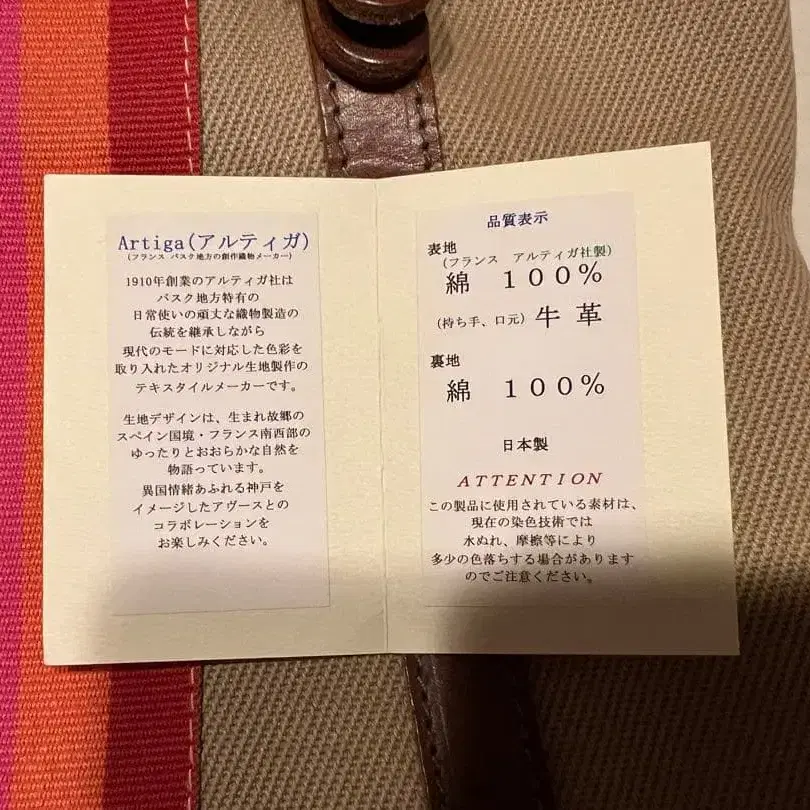 Artiga(アルティガ)
(フランス バスク地方の創作織物メーカー)
1910年創業のアルティガ社は
バスク地方特有の
日常使いの頑丈な織物製造の
伝統を継承しながら
現代のモードに対応した色彩を
取り入れたオリジナル生地製作の
テキスタイルメーカーです。
生地デザインは、生まれ故郷の
スペイン国境・フランス南西部の
ゆったりとおおらかな自然を
物語っています。
異国情緒あふれる神戸を
イメージしたアヴースとの
コラボレーションを
お楽しみください。
品質表示
表地
(フランス アルティガ社製)
綿 100%
(持ち手、口元) 牛 革
裏地
綿 100%
日本製
ATTENTION
この製品に使用されている素材は、
現在の染色技術では
水ぬれ、摩擦等により
多少の色落ちする場合があります
のでご注意ください。